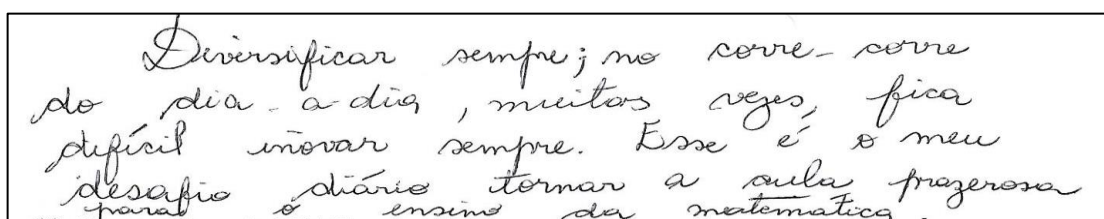 Diversificar sempre; no corre-corre
do dia-a-dia, muitas vezes, fica
difícil inovar sempre. Esse é o meu
desafio diário tornar a aula prazerosa
para o ensino da matemática.